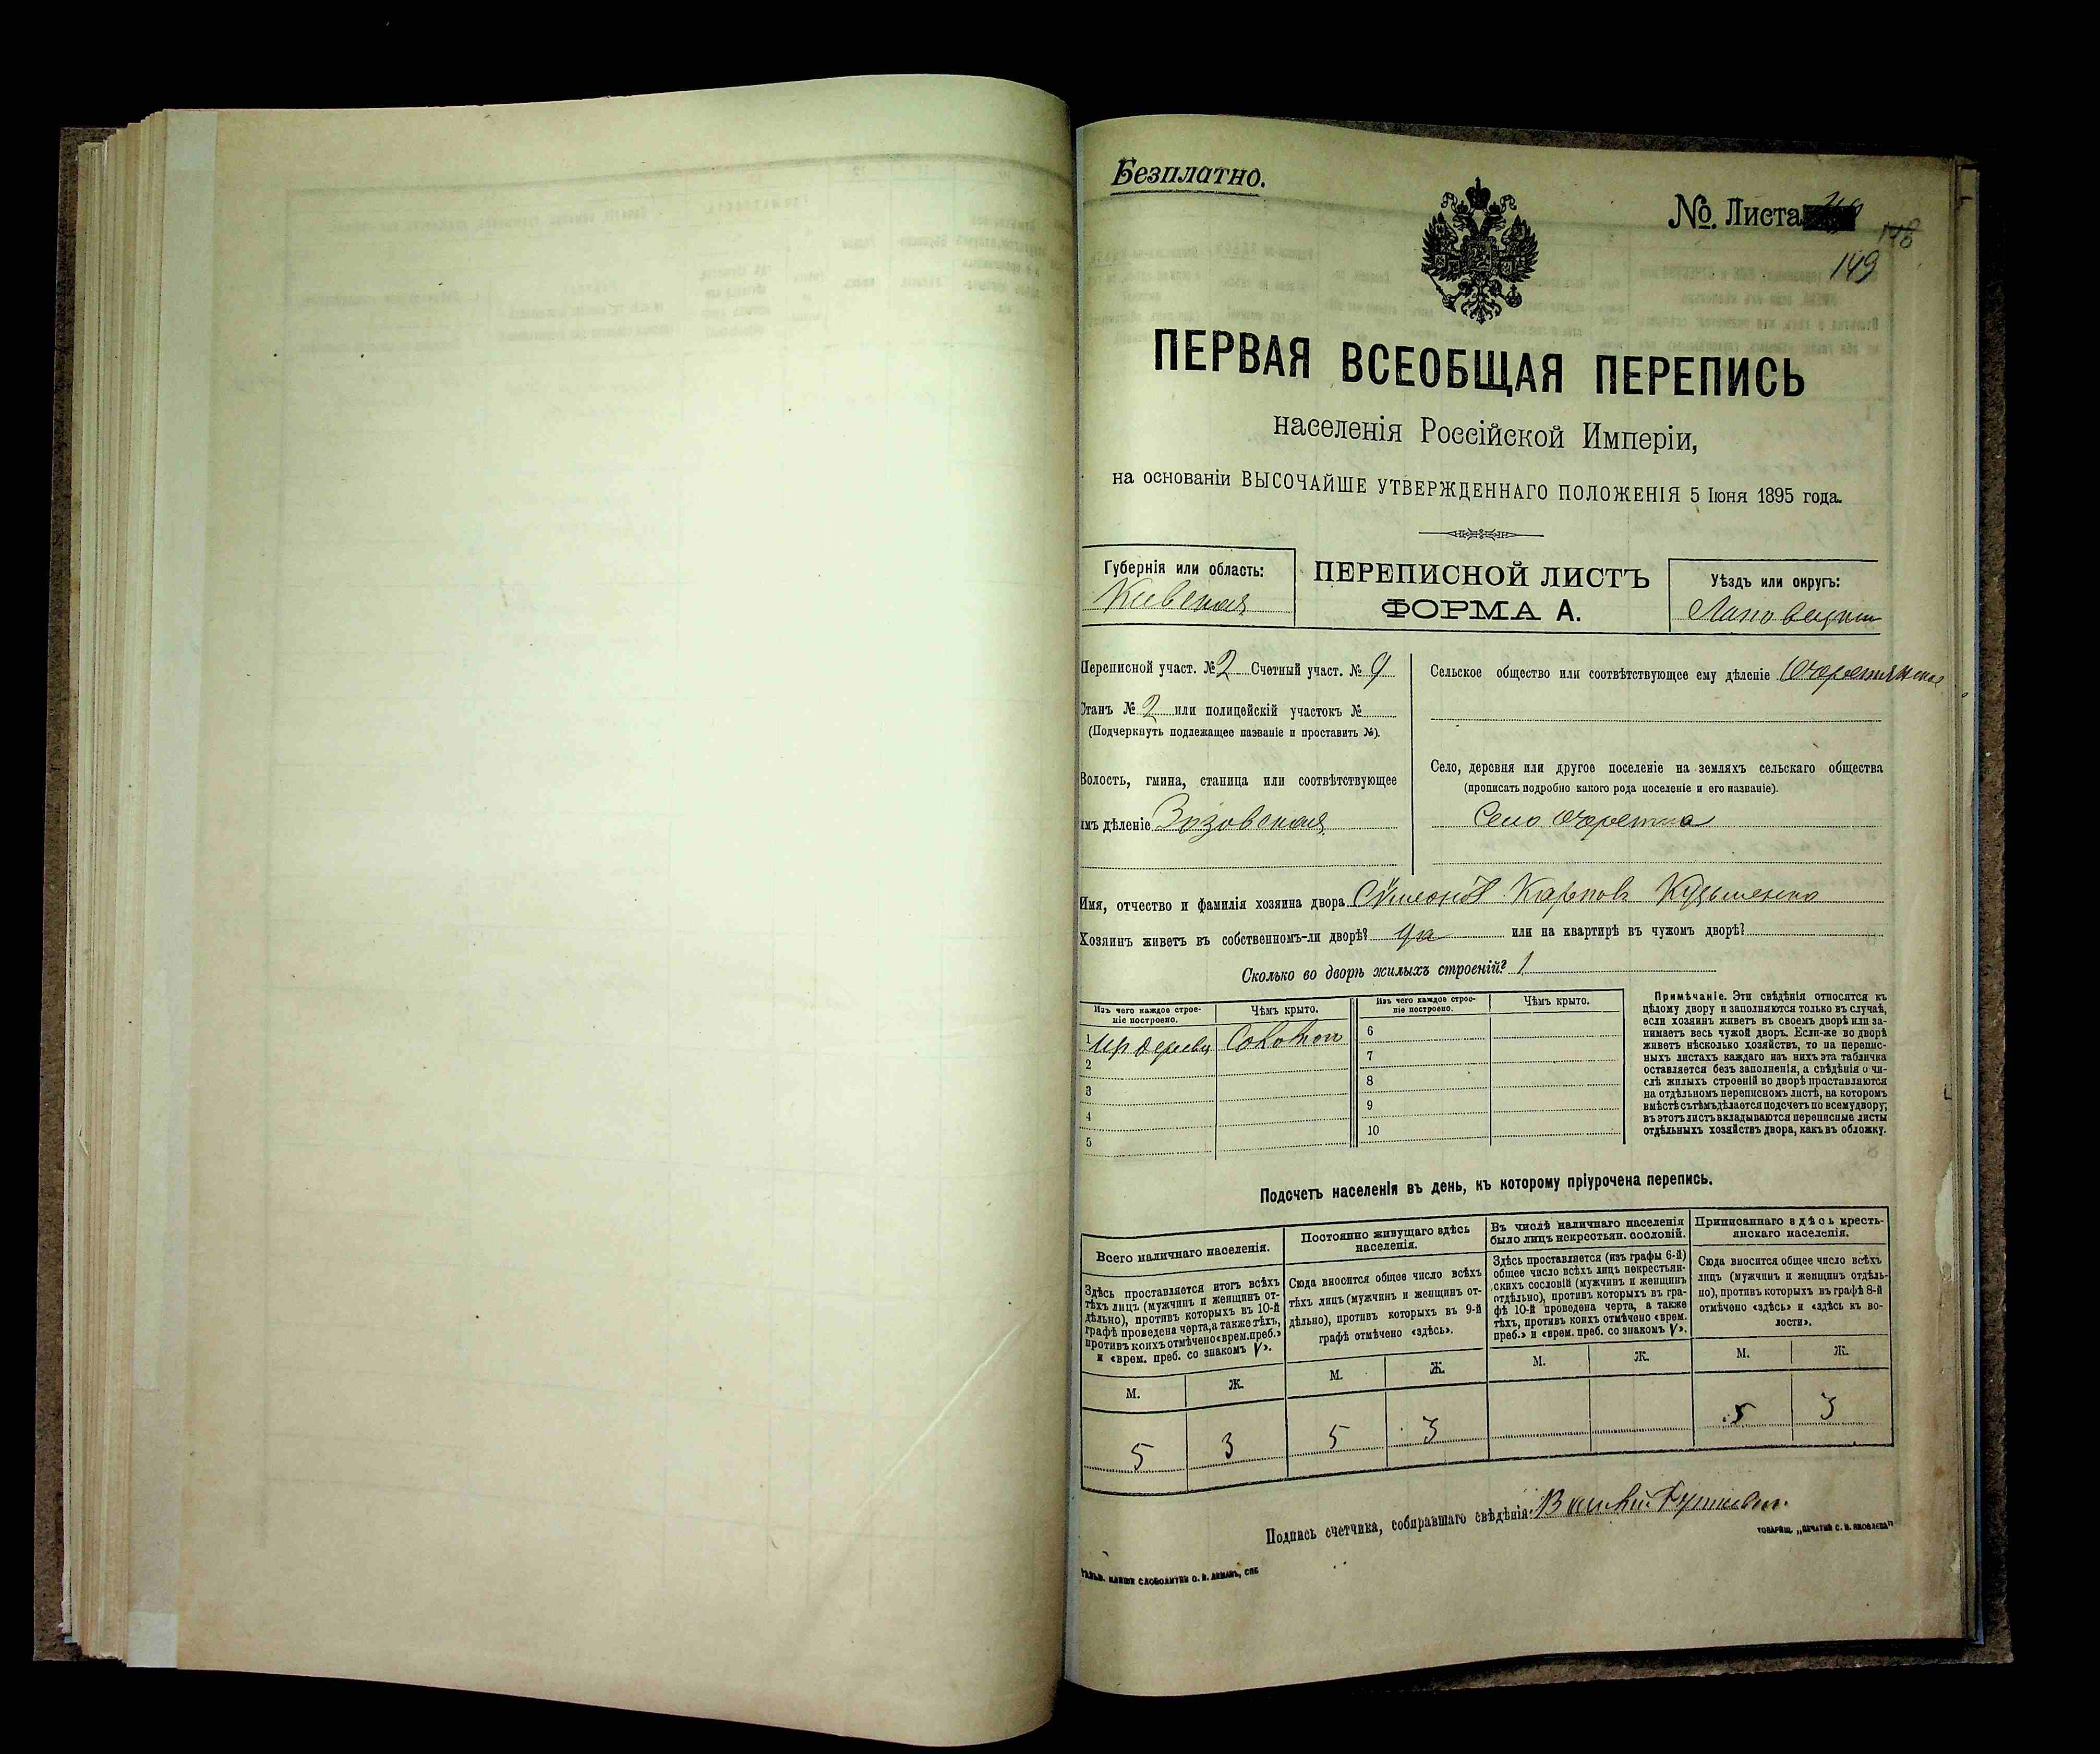 Безплатно.
№. Листа
148
149
ПЕРВАЯ ВСЕОБЩАЯ ПЕРЕПИСЬ
населенія Россійской Имперіи,
на основаніи ВЫСОЧАЙШЕ УТВЕРЖДЕННАГО ПОЛОЖЕНІЯ 5 Іюня 1895 года.
Губернія или область:
Киевская
ПЕРЕПИСНОЙ ЛИСТЪ
ФОРМА А.
Уѣздъ или округъ:
Переписной участ. № 2 Счетный участ. № 9
Станъ № 2 или полицейскій участокъ №
(Подчеркнуть подлежащее названіе и проставить №).
Волость, гмина, станица или соотвѣтствующее
имъ дѣленіе Зозовская
Сельское общество или соотвѣтствующее ему дѣленіе Очеретянское
Село, деревня или другое поселеніе на земляхъ сельскаго общества
(прописать подробно какого рода поселеніе и его названіе).
Село Очеретна
Имя, отчество и фамилія хозяина двора Карповъ Кузьменко
Хозяинъ живетъ въ собственномъ-ли дворѣ? да или на квартирѣ въ чужомъ дворѣ?
Сколько во дворѣ жилыхъ строеній? 1
Изъ чего каждое строе-
ніе построено.
Чѣмъ крыто.
Изъ чего каждое строе-
ніе построено.
Чѣмъ крыто.
1
2
3
4
5
6
7
8
9
10
Примѣчаніе. Эти свѣдѣнія относятся къ
цѣлому двору и заполняются только въ случаѣ,
если хозяинъ живетъ въ своемъ дворѣ или за-
нимаетъ весь чужой дворъ. Если-же во дворѣ
живетъ нѣсколько хозяйствъ, то на перепис-
ныхъ листахъ каждаго изъ нихъ эта табличка
оставляется безъ заполненія, а свѣдѣнія о чи-
слѣ жилыхъ строеній во дворѣ проставляются
на отдѣльномъ переписномъ листѣ, на которомъ
вмѣстѣ съ тѣмъ дѣлается подсчетъ по всему двору;
въ этотъ листъ вкладываются переписные листы
отдѣльныхъ хозяйствъ двора, какъ въ обложку.
Подсчетъ населенія въ день, къ которому пріурочена перепись.
Всего наличнаго населенія.
Здѣсь проставляется итогъ всѣхъ
тѣхъ лицъ (мужчинъ и женщинъ от-
дѣльно), противъ которыхъ въ 10-й
графѣ проведена черта, а также тѣхъ,
противъ коихъ отмѣчено «врем. преб.»
и «врем. преб. со знакомъ V».
Постоянно живущаго здѣсь
населенія.
Сюда вносится общее число всѣхъ
тѣхъ лицъ (мужчинъ и женщинъ от-
дѣльно), противъ которыхъ въ 9-й
графѣ отмѣчено «здѣсь».
Въ числѣ наличнаго населенія
было лицъ некрестьян. сословій.
Здѣсь проставляется (изъ графы 6-й)
общее число всѣхъ лицъ некрестьян-
скихъ сословій (мужчинъ и женщинъ
отдѣльно), противъ которыхъ въ гра-
фѣ 10-й проведена черта, а также
тѣхъ, противъ коихъ отмѣчено «врем.
преб.» и «врем. преб. со знакомъ V».
Приписаннаго здѣсь кресть-
янскаго населенія.
Сюда вносится общее число всѣхъ
лицъ (мужчинъ и женщинъ отдѣль-
но), противъ которыхъ въ графѣ 8-й
отмѣчено «здѣсь» и «здѣсь къ во-
лости».
М. Ж. М. Ж. М. Ж. М. Ж.
5 3 5 3 5 3
Подпись счетчика, собиравшаго свѣдѣнія:
ТОВАРИЩ. „ПЕЧАТНЯ С. П. ЯКОВЛЕВА"